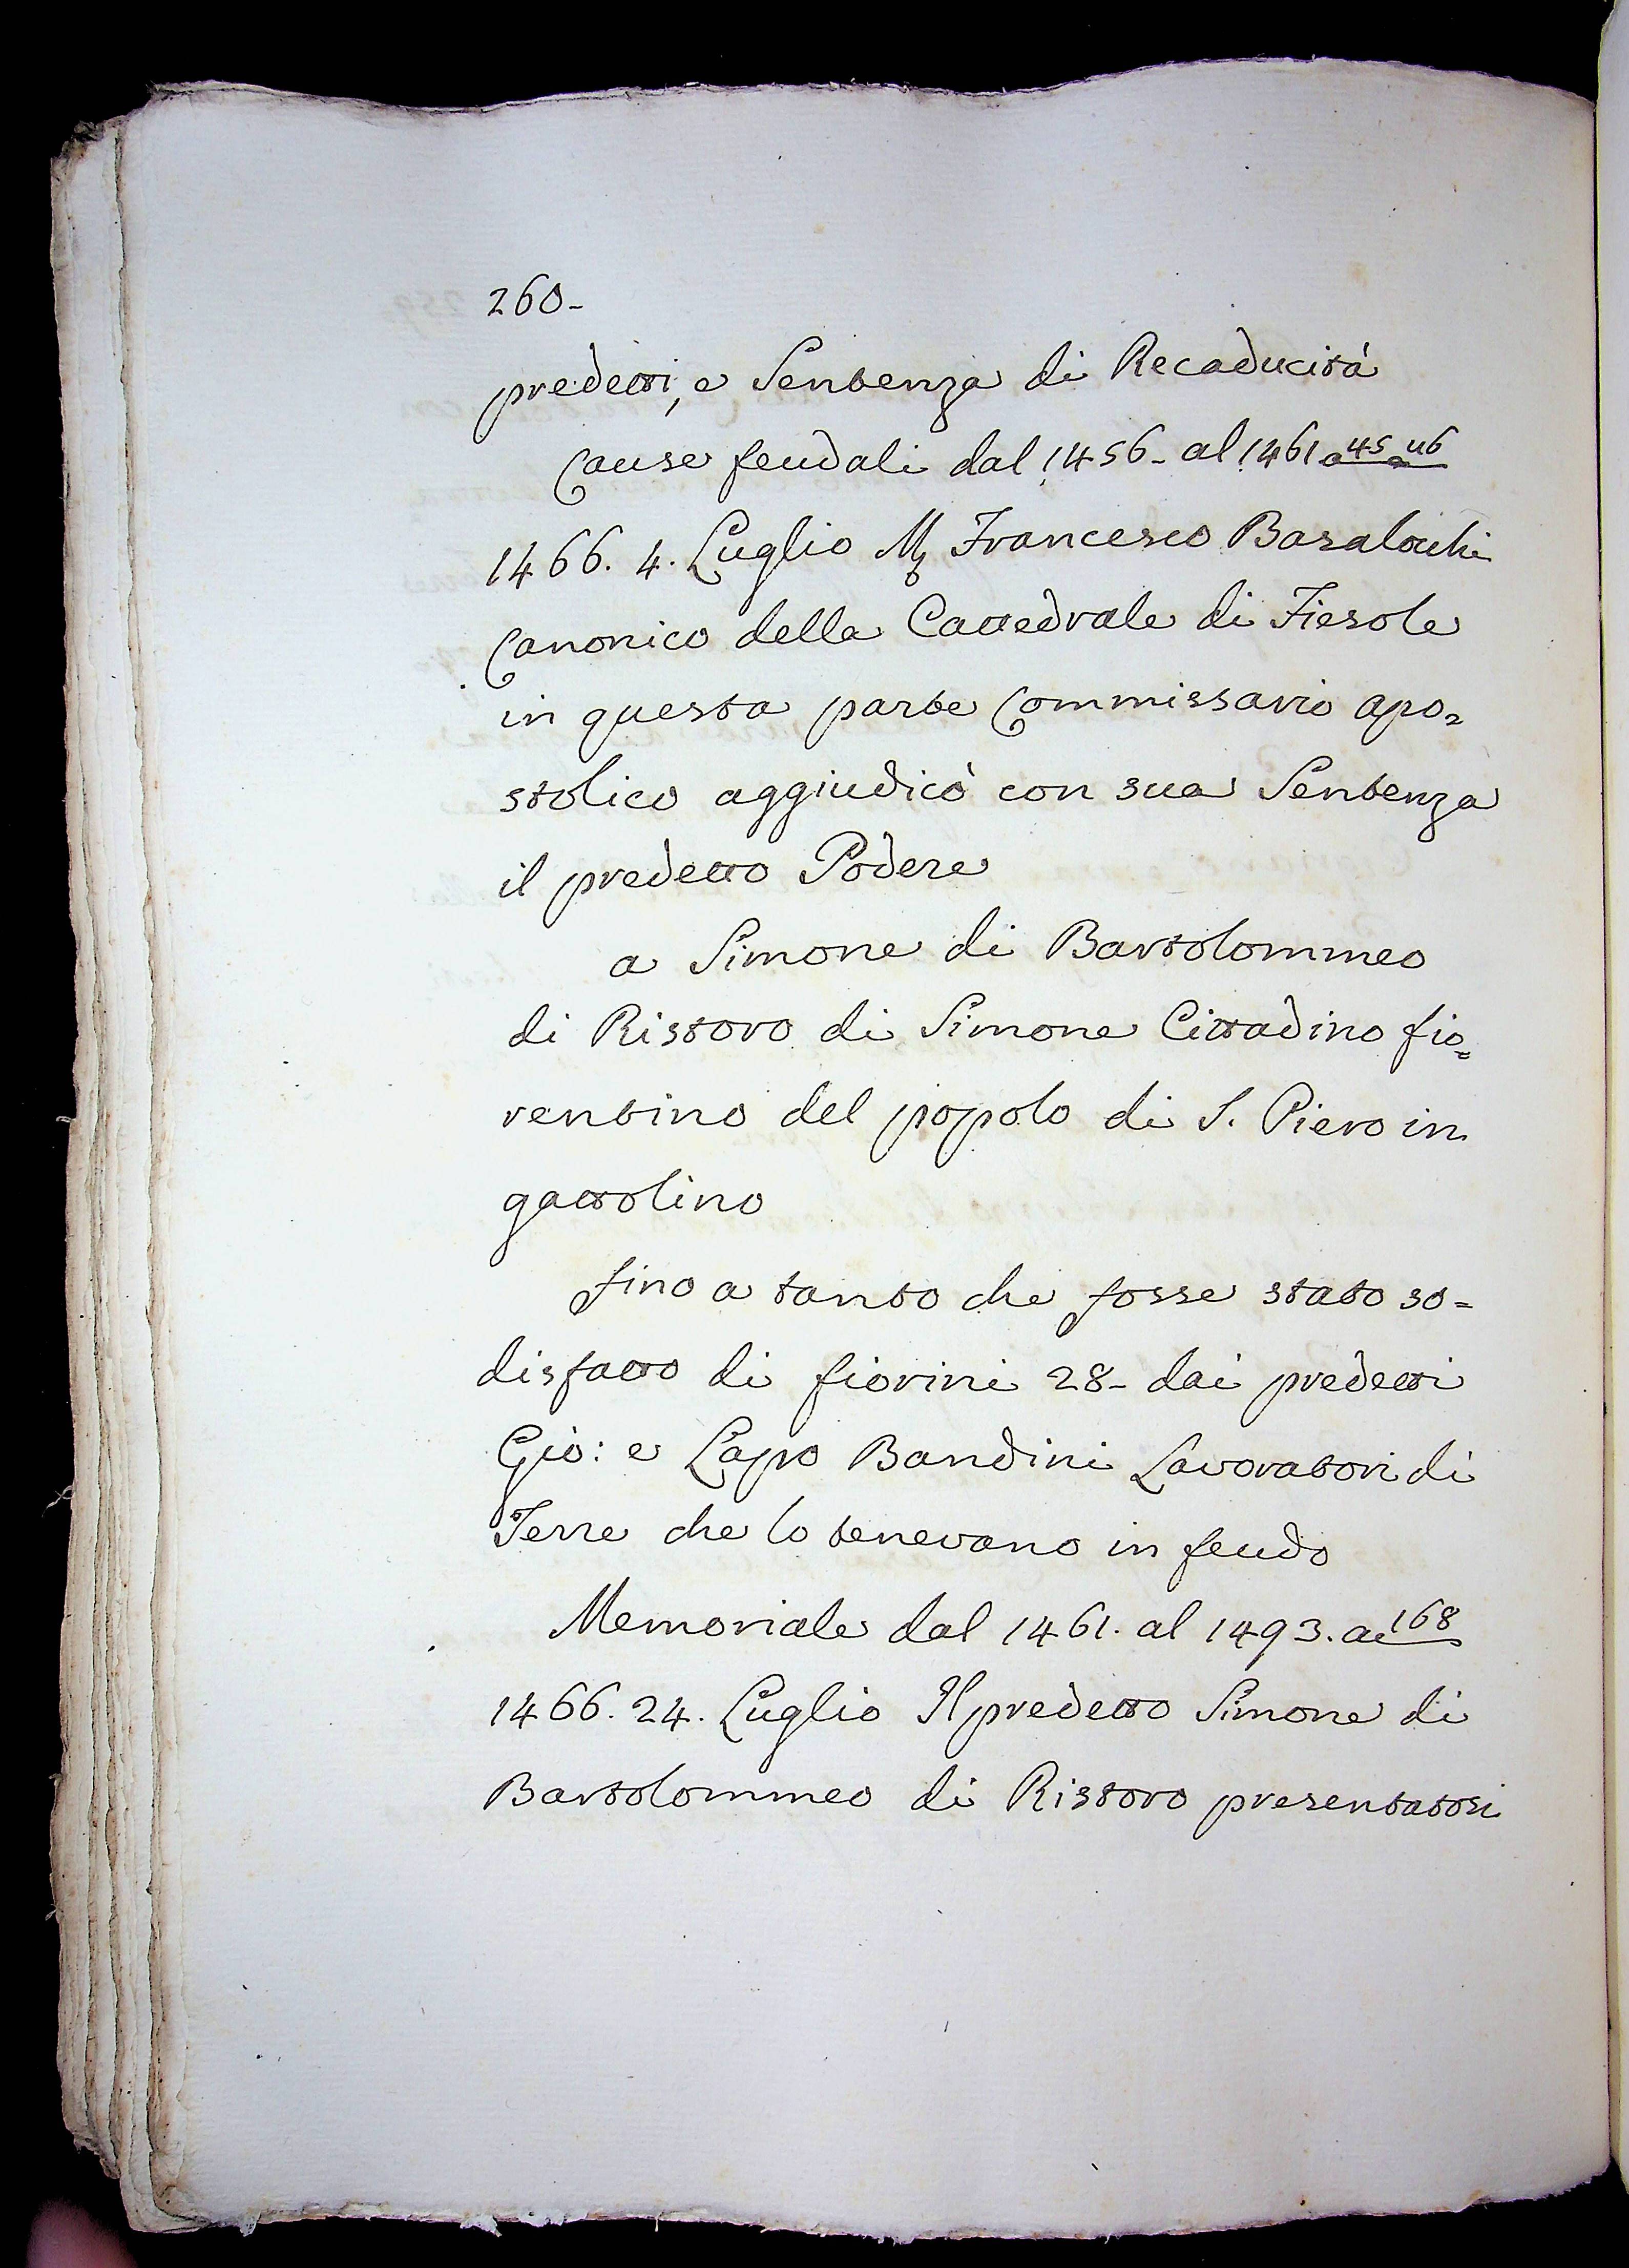 260-
predetti, e Sentenza di Recaducità
Cause feudali dal 1456- al 1461 a 45 a 46
1466. 4. Luglio M. Francesco
Canonico della Cattedrale di Fiesole
in questa parte Commissario apo=
stolico aggiudicò con sua Sentenza
il predetto Podere
a Simone di Bartolommeo
di Ristoro di Simone Cittadino fio=
rentino del popolo di S. Piero in
gattolino
fino a tanto che fosse stato so=
disfatto di fiorini 28- dai predetti
Gio: e Lapo Bandini Lavoratori di
Terre che lo tenevano in feudo
Memoriale dal 1461. al 1493. ac 168
1466. 24. Luglio Il predetto Simone di
Bartolommeo di Ristoro presentatosi